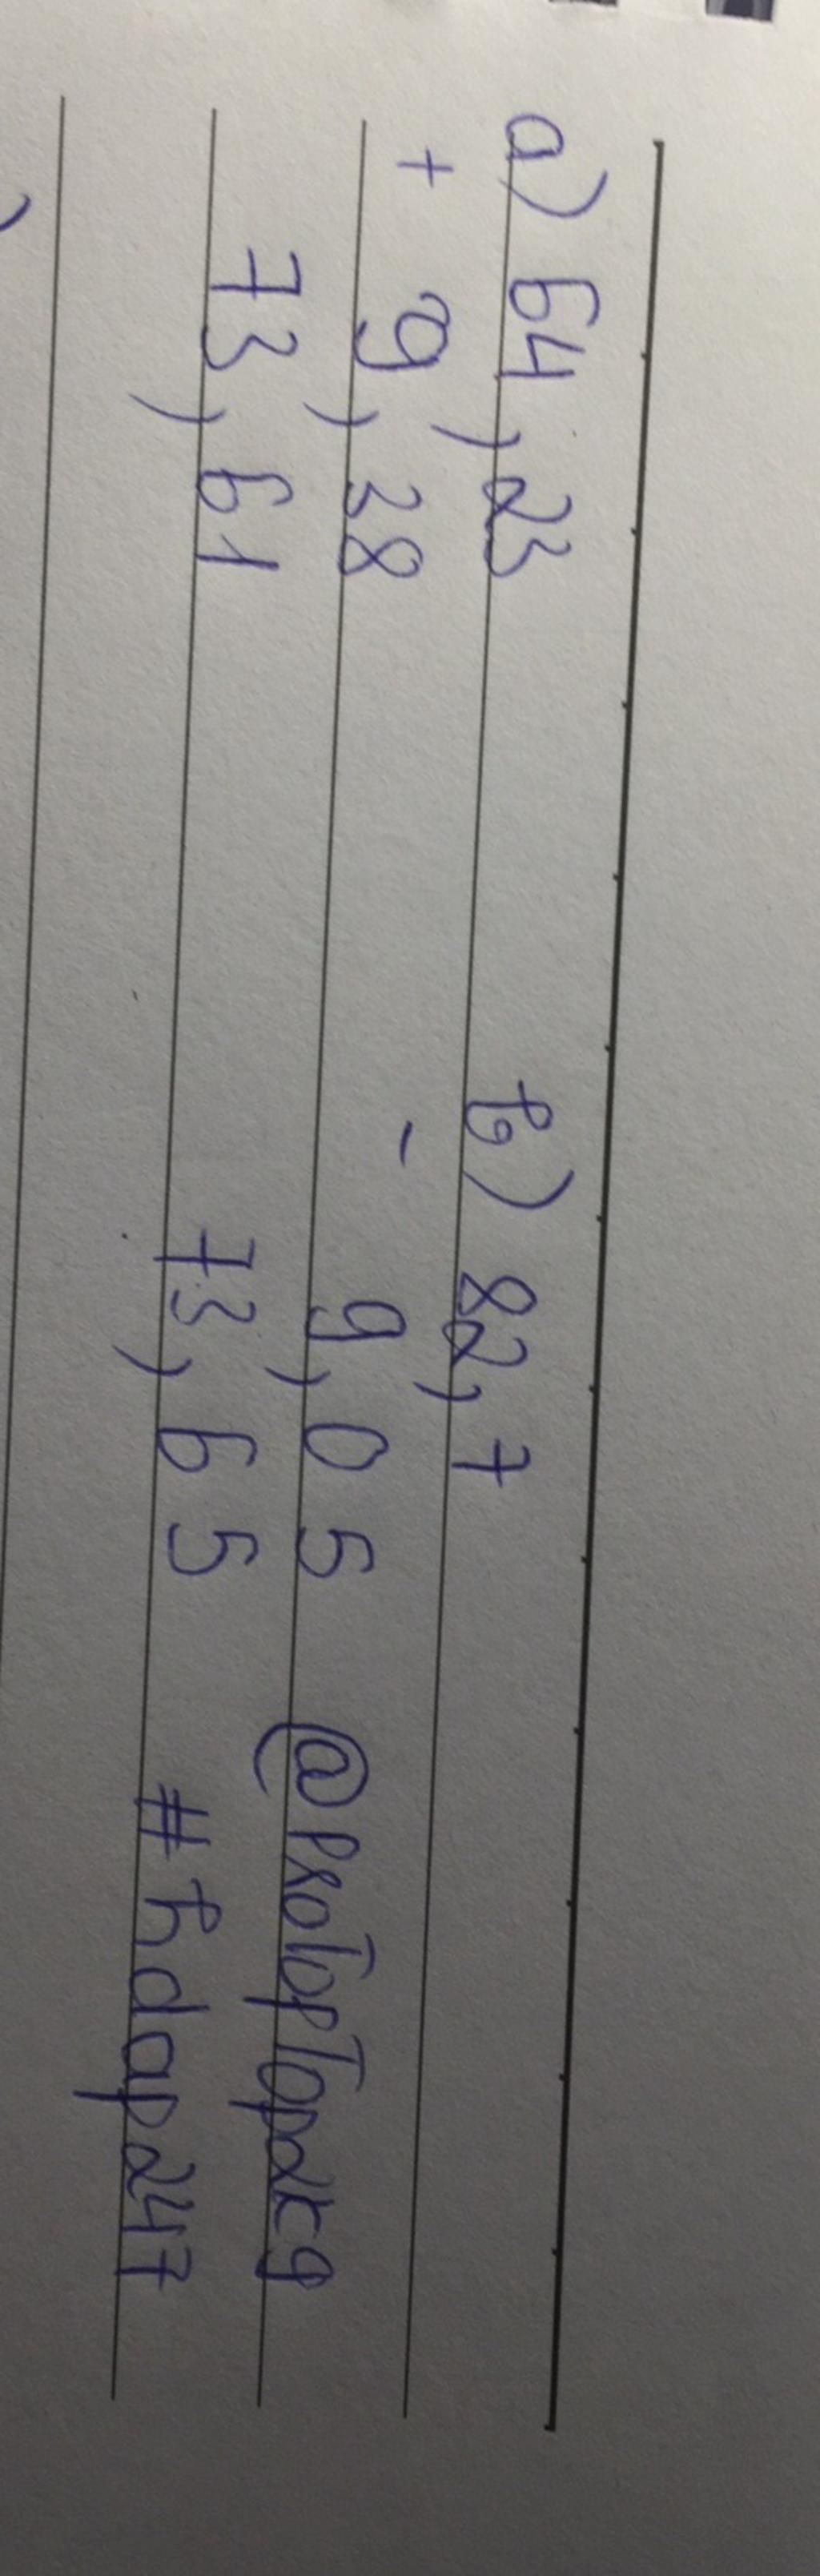 a) 64,23 b) 82,7
+ 9,38 - 9,05 @ProTopTop2k9
73,61 73,65 #hdap247